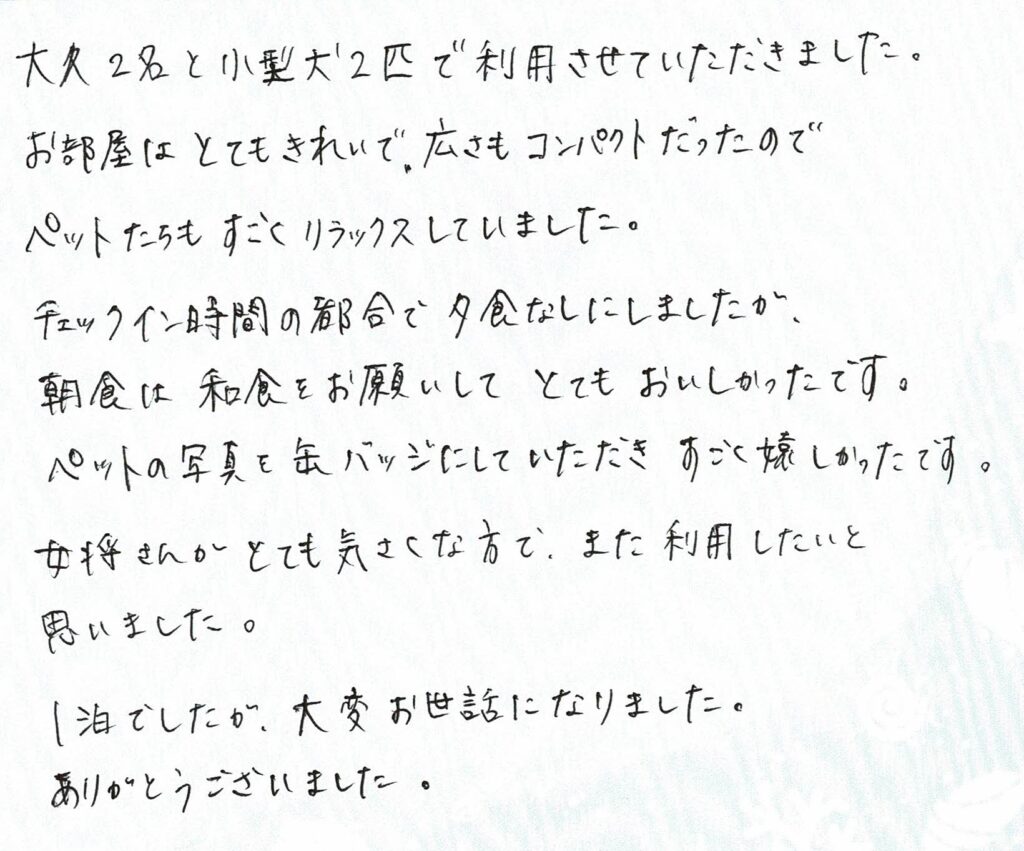 大人2名と小型犬2匹で利用させていただきました。
お部屋はとてもきれいで、広さもコンパクトだったので
ペットたちもすごくリラックスしていました。
チェックイン時間の都合で夕食なしにしましたが、
朝食は和食をお願いしてとてもおいしかったです。
ペットの写真を缶バッジにしていただきすごく嬉しかったです。
女将さんがとても気さくな方で、また利用したいと
思いました。
1泊でしたが、大変お世話になりました。
ありがとうございました。